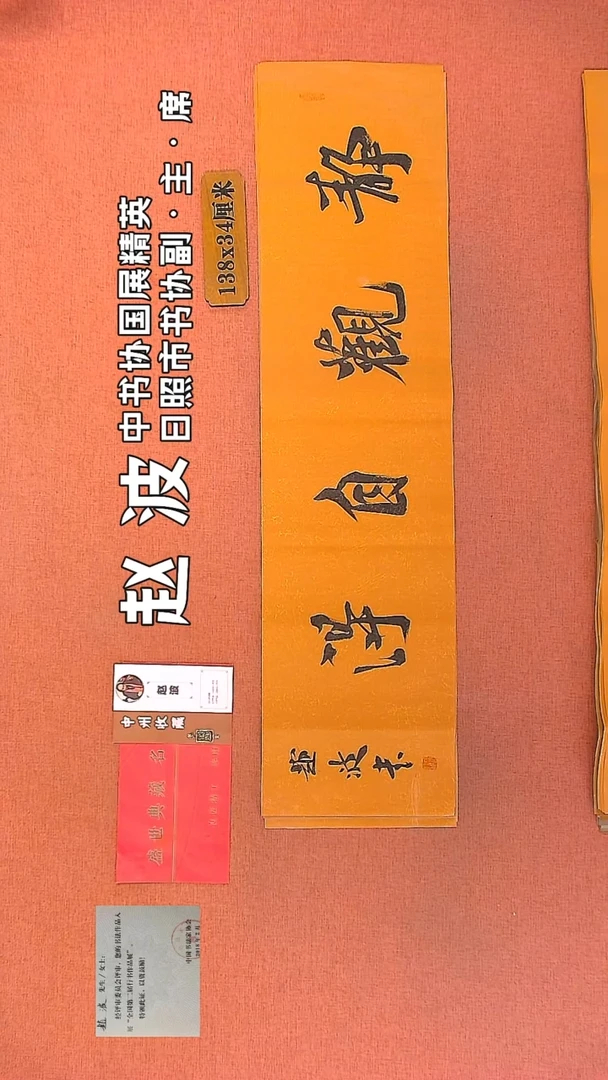 赵波
中书协国展精英
日照市书协副·主·席
138x34厘米
静觀自得
趙波书
赵波
中州收藏
盛世典藏 名
赵波 先生/女士:
经评审委员会评审,您的书法作品入
展“全国第二届行书作品展”。
特颁此证,以资鼓励!
中国书法家协会